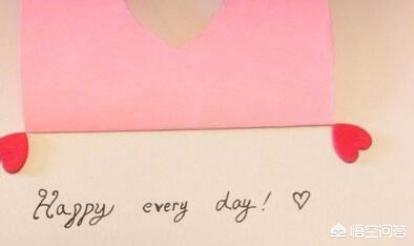 Happy every day! ♡
悟空问答